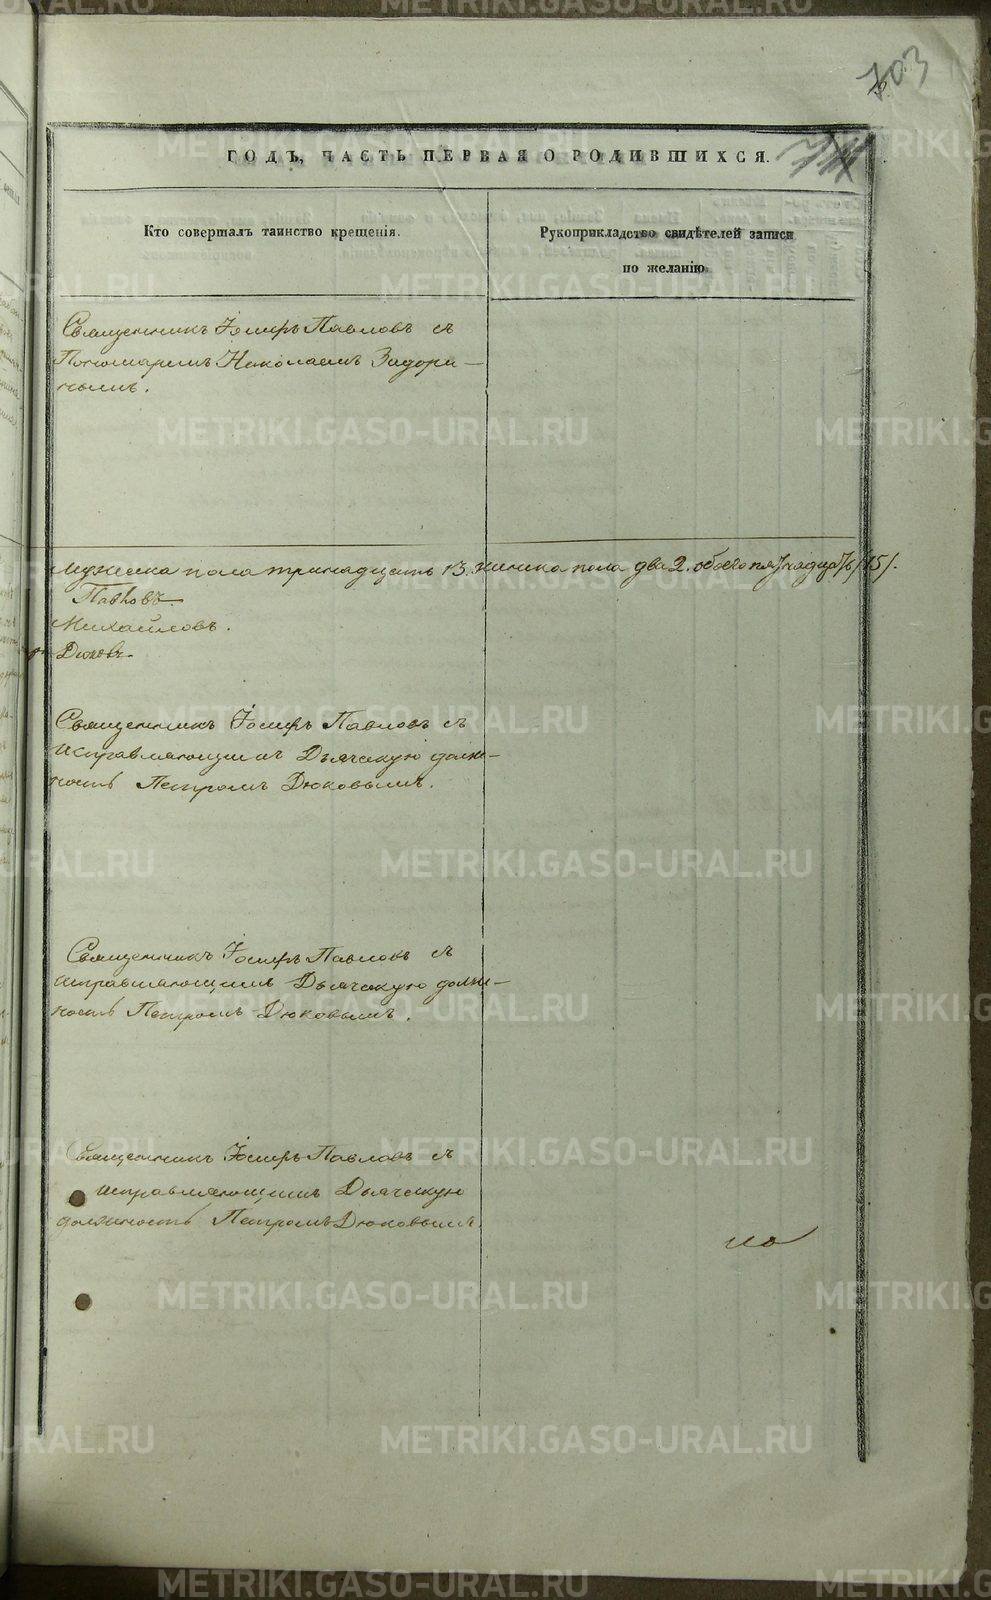 703
ГОДЪ, ЧАСТЬ ПЕРВАЯ О РОДИВШИХСЯ.
Кто совершалъ таинство крещенія.
Рукоприкладство свидѣтелей записи
по желанію.
Священникъ Іосифъ Павловъ съ
Пономаремъ Николаемъ Задори-
нымъ.
Мужеска пола тринадцать 13, женска пола два 2. обоего пятнадцать /15/.
Павловъ.
Михайловъ.
Дюковъ.
Священникъ Іосифъ Павловъ съ
исправляющимъ Дьячскую долж-
ность Петромъ Дюковымъ.
Священникъ Іосифъ Павловъ съ
исправляющимъ Дьячскую долж-
ность Петромъ Дюковымъ.
Священникъ Іосифъ Павловъ съ
исправляющимъ Дьячскую
должность Петромъ Дюковымъ.
METRIKI.GASO-URAL.RU